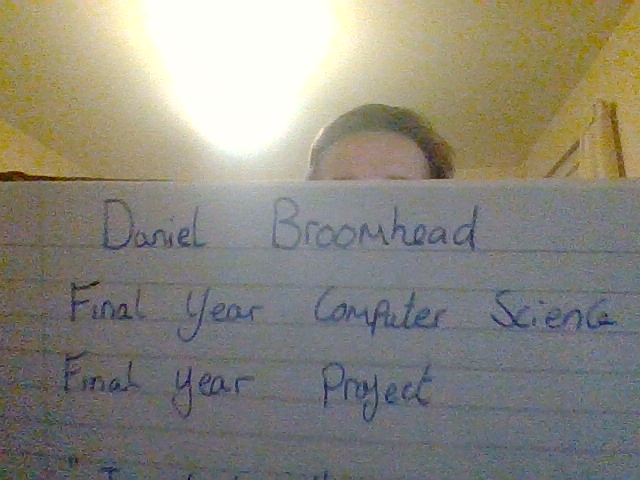 Daniel Broomhead
Final Year Computer Science
Final Year Project